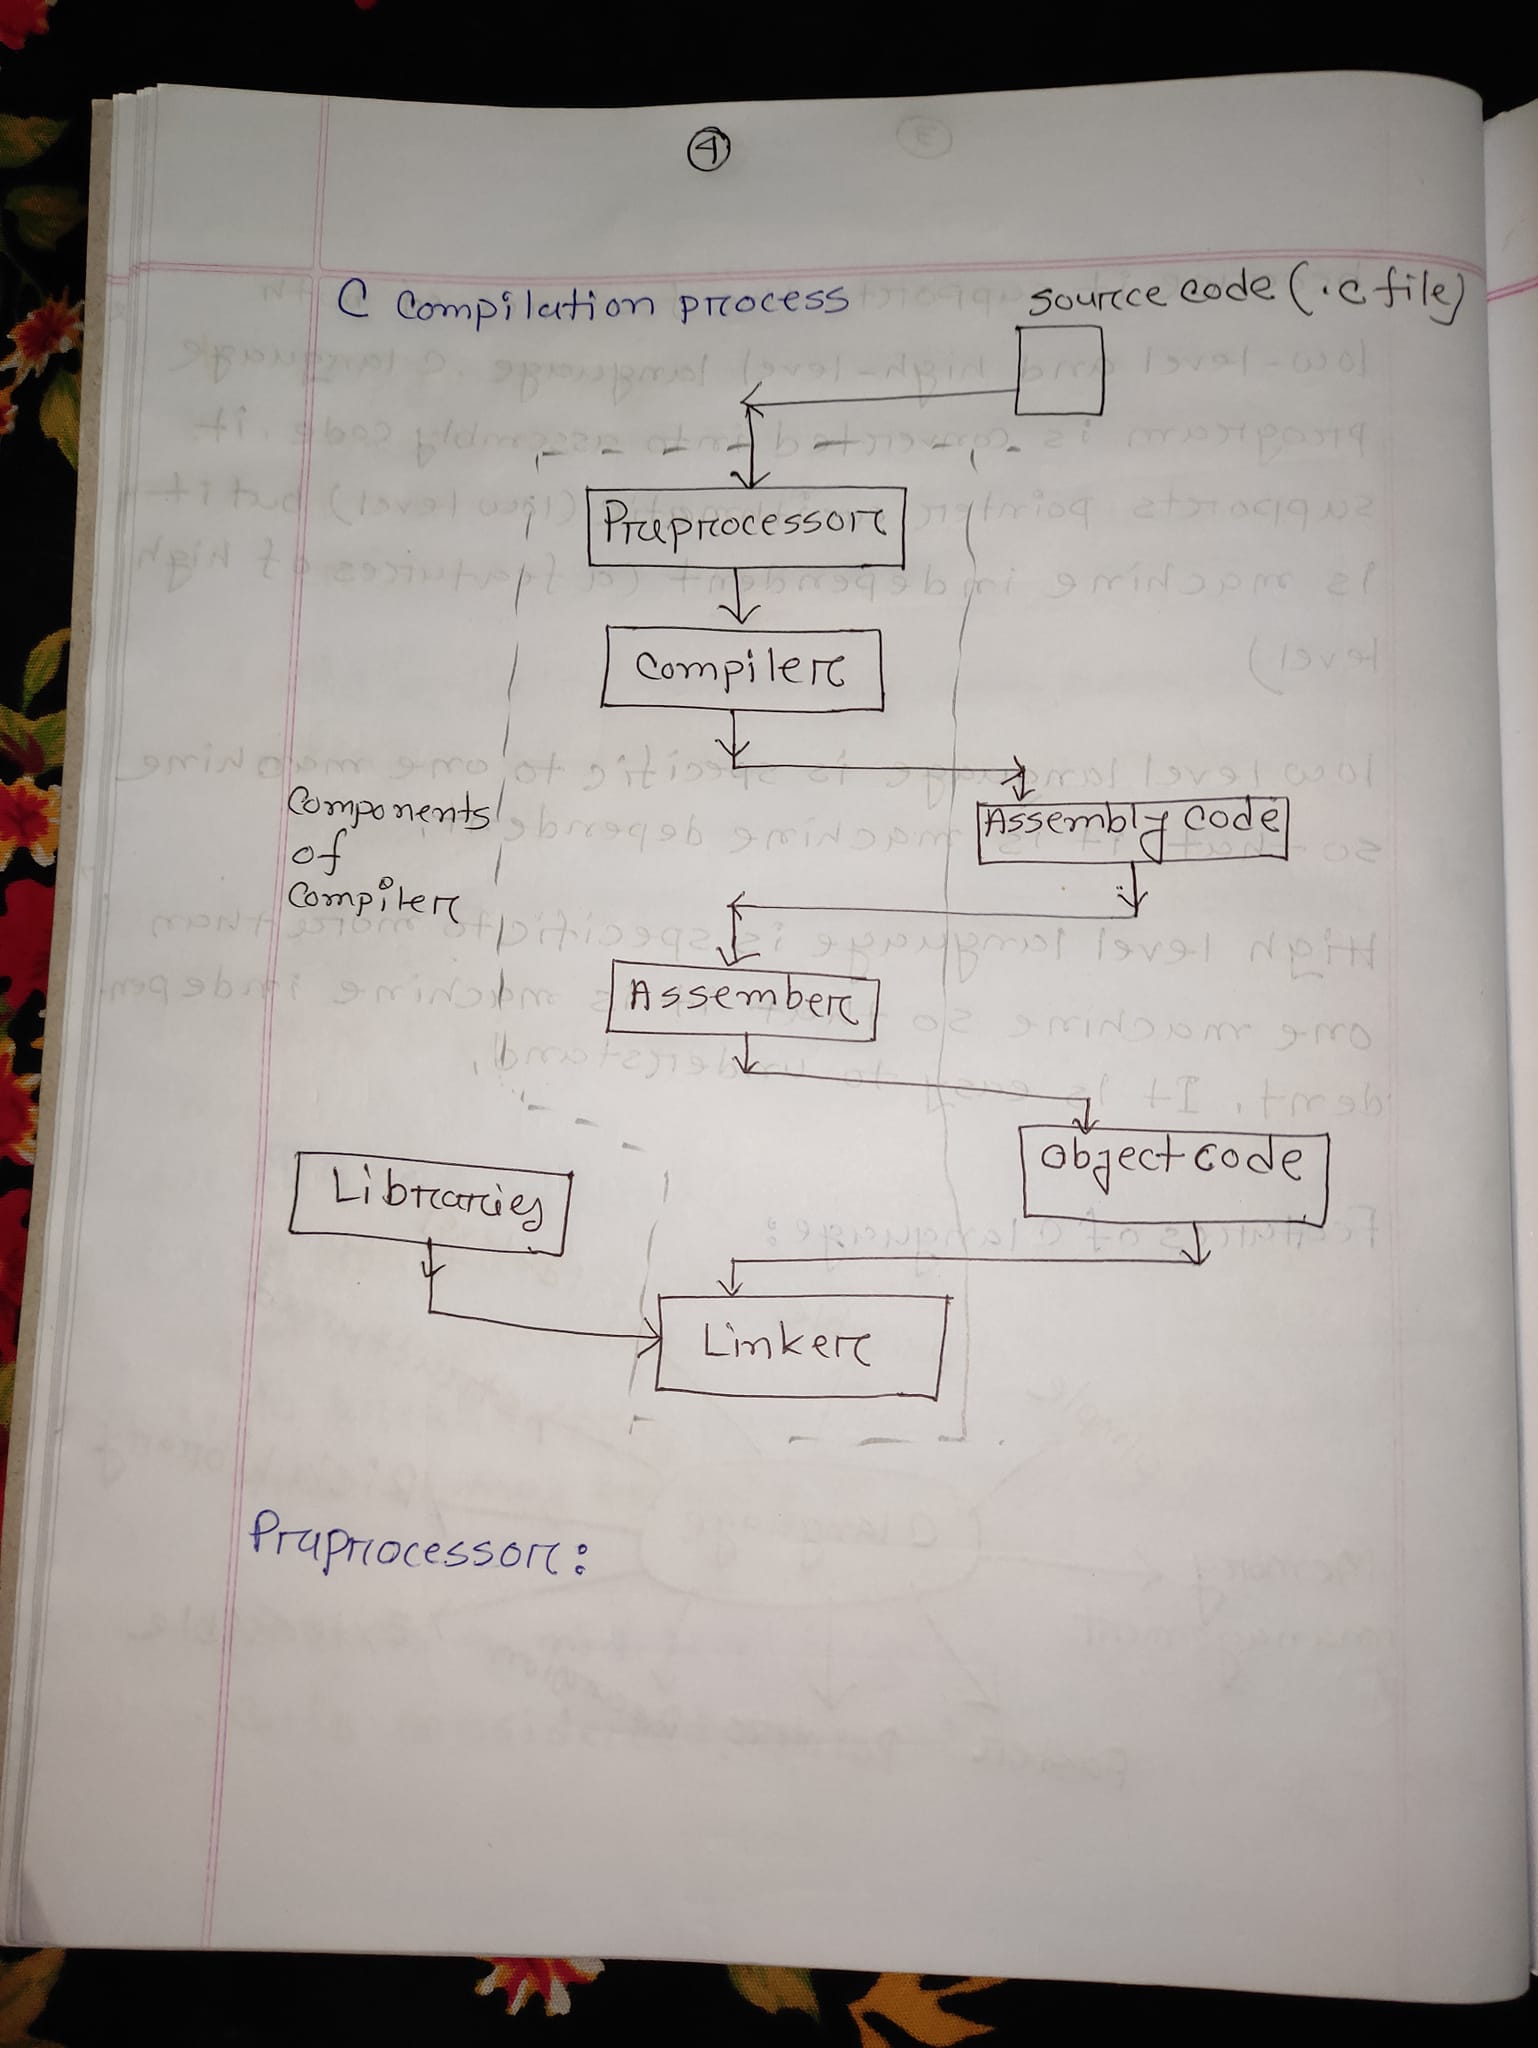 4
C compilation process
source code (.c file)
Preprocessor
Compiler
Components
of
Compiler
Assembly code
Assember
Object code
Libraries
Linker
Preprocessor: